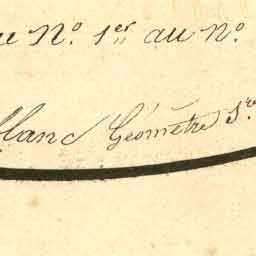 du N.º 1.er au N.º
blanc Géomètre S.re